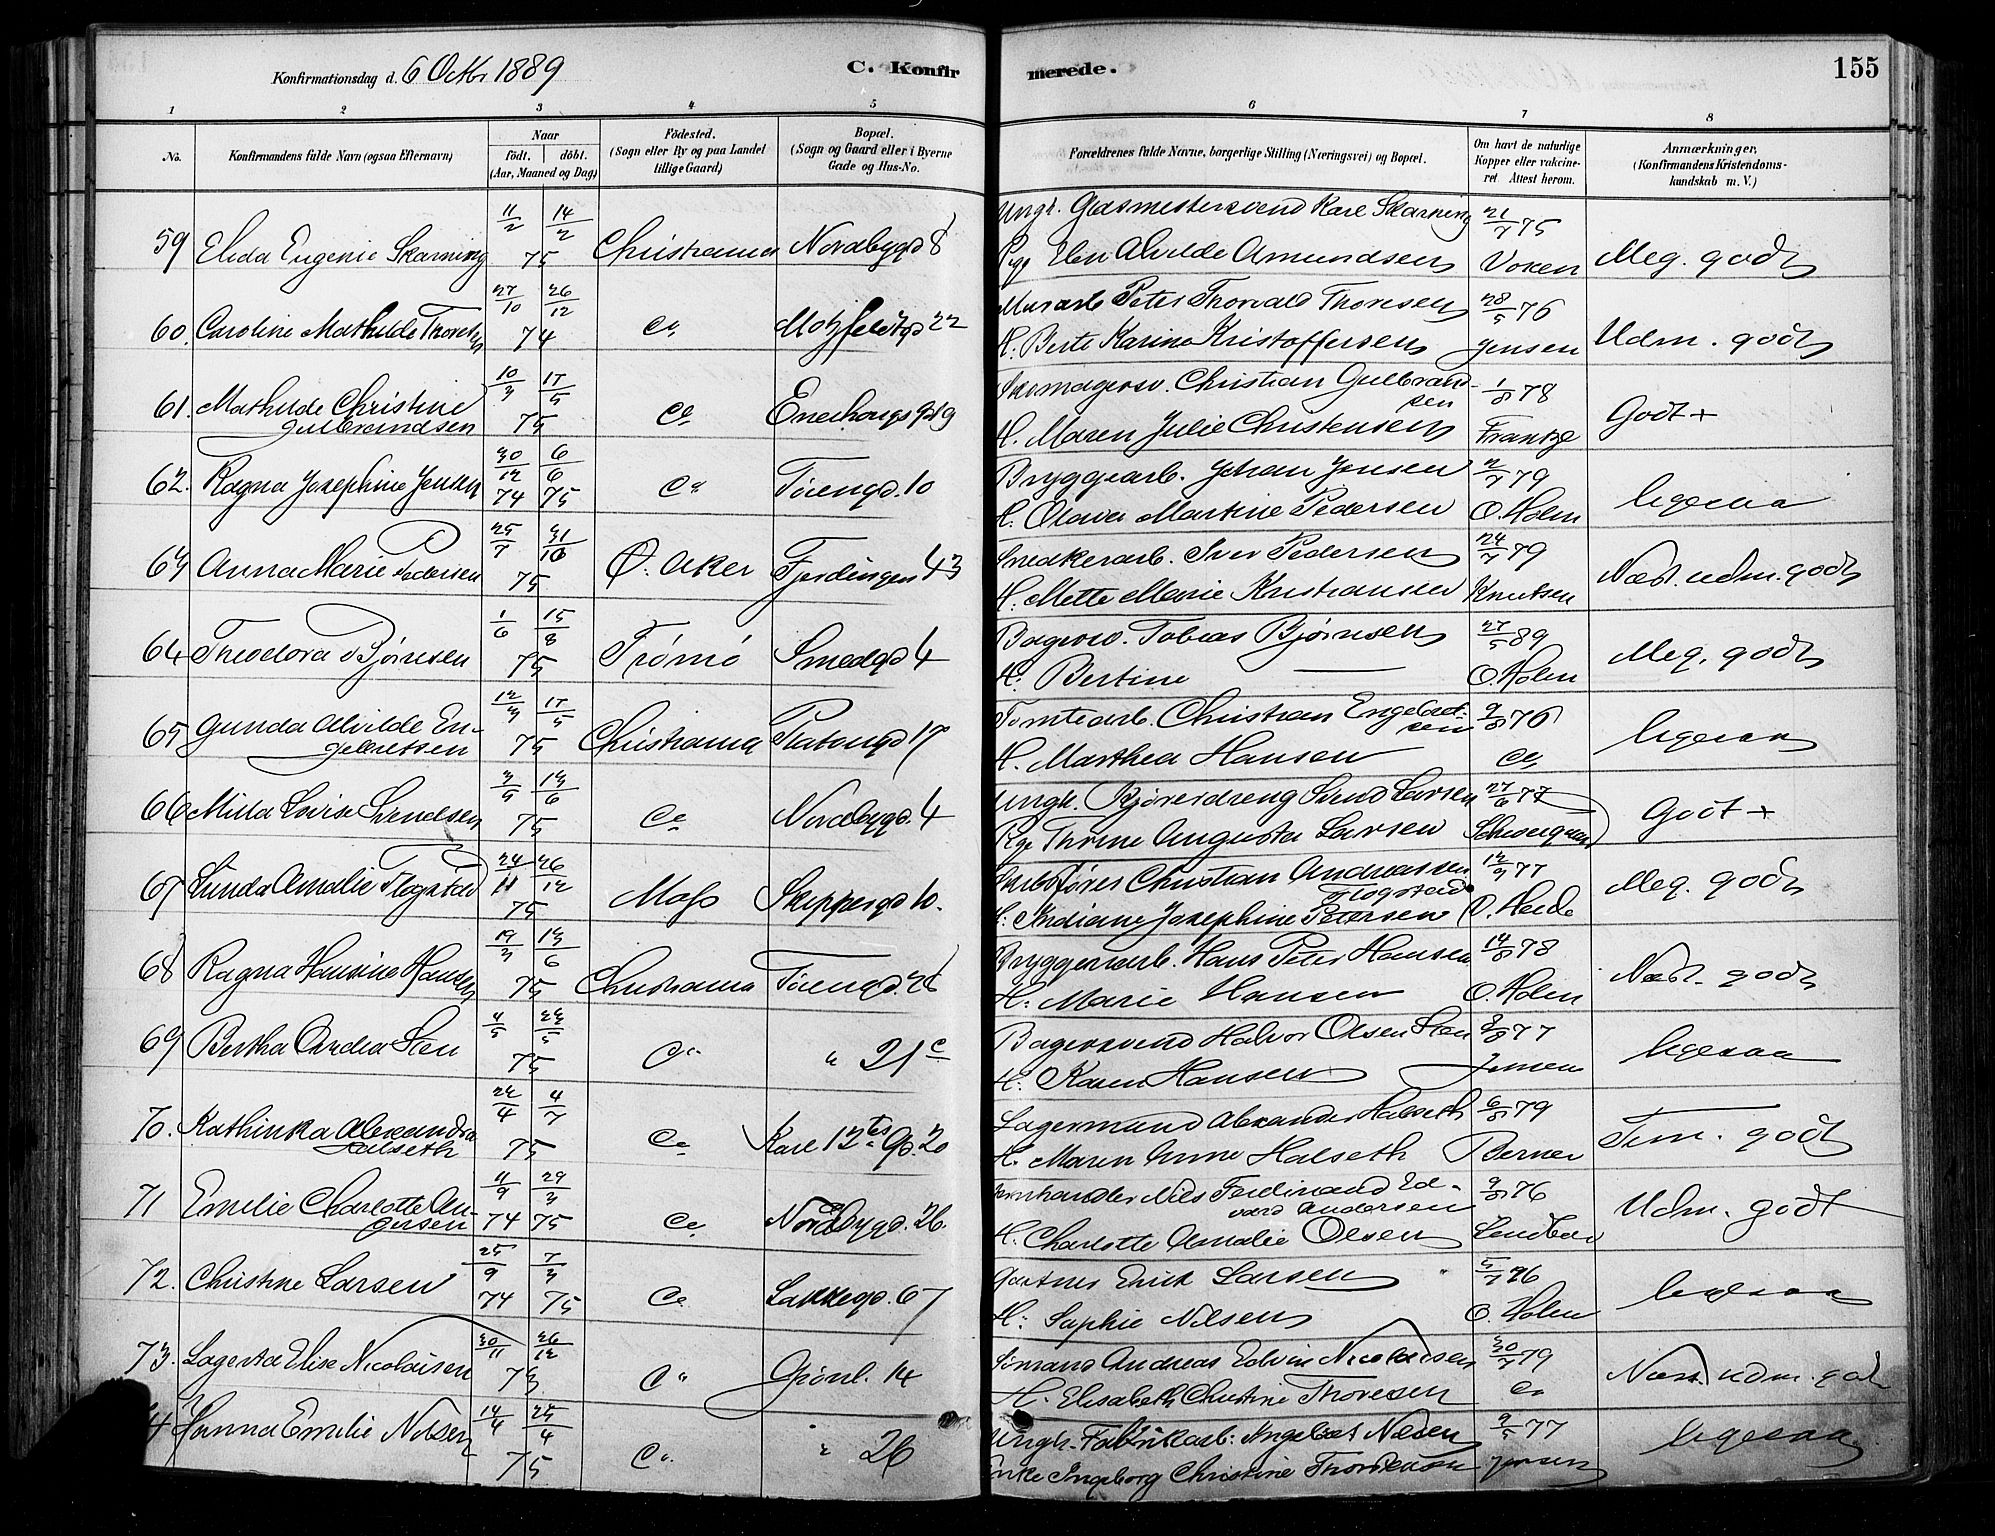 Konfirmationsdag d. 6 Octbr 1889 C. Konfirmerede. 155
1 2 3 4 5 6 7 8
No. Konfirmandens fulde Navn (ogsaa Efternavn) Naar födt. döbt. (Aar, Maaned og Dag) Födested. (Sogn eller By og paa Landet tillige Gaard) Bopæl. (Sogn og Gaard eller i Byerne Gade og Hus-No. Forældrenes fulde Navne, borgerlige Stilling (Næringsvei) og Bopæl. Om havt de naturlige Kopper eller vakcineret. Attest herom. Anmærkninger, (Konfirmandens Kristendomskundskab m. V.)
11/2 14/2 Ungk. Glasmestersvend Karl Skarning 21/7 75
59 Elida Eugenie Skarning 75 Christiania Nordbygd 8 Pige Elen Alvilde Amundsen Voxen Meg. godt
27/10 26/12 Murarb. Peter Thorvald Thoresen 28/5 76
60. Caroline Mathilde Thoresen 74 do Motzfeldtgd 22 H. Berte Karine Kristoffersen Jensen Udm. godt
10/3 17/5 Skomagersv. Christian Gulbrandsen 1/8 78
61. Mathilde Christine Gulbrandsen 75 do Enerhougsgd 19 H. Maren Julie Christensen Frantze Godt +
30/12 74 6/6 75 Bryggearb. Johan Jensen 2/7 79
62. Ragna Josephine Jensen do Töiengd. 10 H. Olava Martine Pedersen O. Holm ligesaa
25/7 31/10 Snedkerarb. Iver Pedersen 24/7 79
63 Anna Marie Pedersen 75 Ø. Aker Fjerdingen 43 H. Mette Marie Kristiansen Knutsen Næst. udm. godt
1/6 15/8 Bagersv. Tobias Bjørnsen 27/5 89
64 Theodora Bjørnsen 75 Tromö Smedgd 4 H. Bertine — O. Holm Meg. godt
12/3 17/5 Tomtearb. Christian Engebretsen 9/8 76
65 Gunda Alvilde Engebretsen 75 Christiania Platougd 17 H. Marthea Hansen do ligesaa
3/5 13/6 Ungk. Kjøredreng Svend Larsen 27/6 77
66 Milla Lovise Svendsen 75 do Nordbygd. 4 Pige Thrine Augusta Larsen Schwengaard Godt +
24/11 26/12 Skibsfører Christian Andreassen Flogstad 12/9 77
67 Lunda Amalie Flogstad 75 Moss Skippergd 10. H. Indiane Josephine Petersen O. Heide Meg. godt
19/3 13/6 Bryggeriarb. Hans Peter Hansen 14/8 78
68 Ragna Hansine Hansen 75 Christiania Töiengd. 26 H. Marie Hansen O. Holm Næst. godt
4/5 23/5 Bagersvend Halvor Olsen Sten 3/8 77
69 Bertha Andrea Sten 75 do " 21 c H. Karen Hansen Jensen ligesaa
22/4 4/7 Lagermand Alexander Halseth 6/8 79
70. Kathinka Alexandra Halseth 75 do Karl 12tes Gd. 20 H. Maren Anne Halseth Berner Tem. godt
4/9 74 29/3 75 Jernhandler Nils Ferdinand Edvard Andersen 9/8 76
71 Emilie Charlotte Andersen do Nordbygd. 26. H. Charlotte Amalie Olsen Lundbae Udm. godt
25/9 74 7/3 75 Gartner Erick Larsen 5/7 76
72. Christine Larsen do Lakkegd. 67 H. Sophie Nilsen O. Holm ligesaa
30/11 26/12 Sömand Andreas Edvin Nicolaisen 30/7 79
73. Lagerta Elise Nicolaisen 73 do Grönl. 14 H. Elisabeth Christine Thoresen do Næst. udm. godt
14/4 25/4 Ungk. Fabrikarb. Angelaet Nilsen 9/5 77
4 Hanna Emilie Nilsen 75 do " 26 Enke Ingeborg Christine Thorstensen Jensen ligesaa